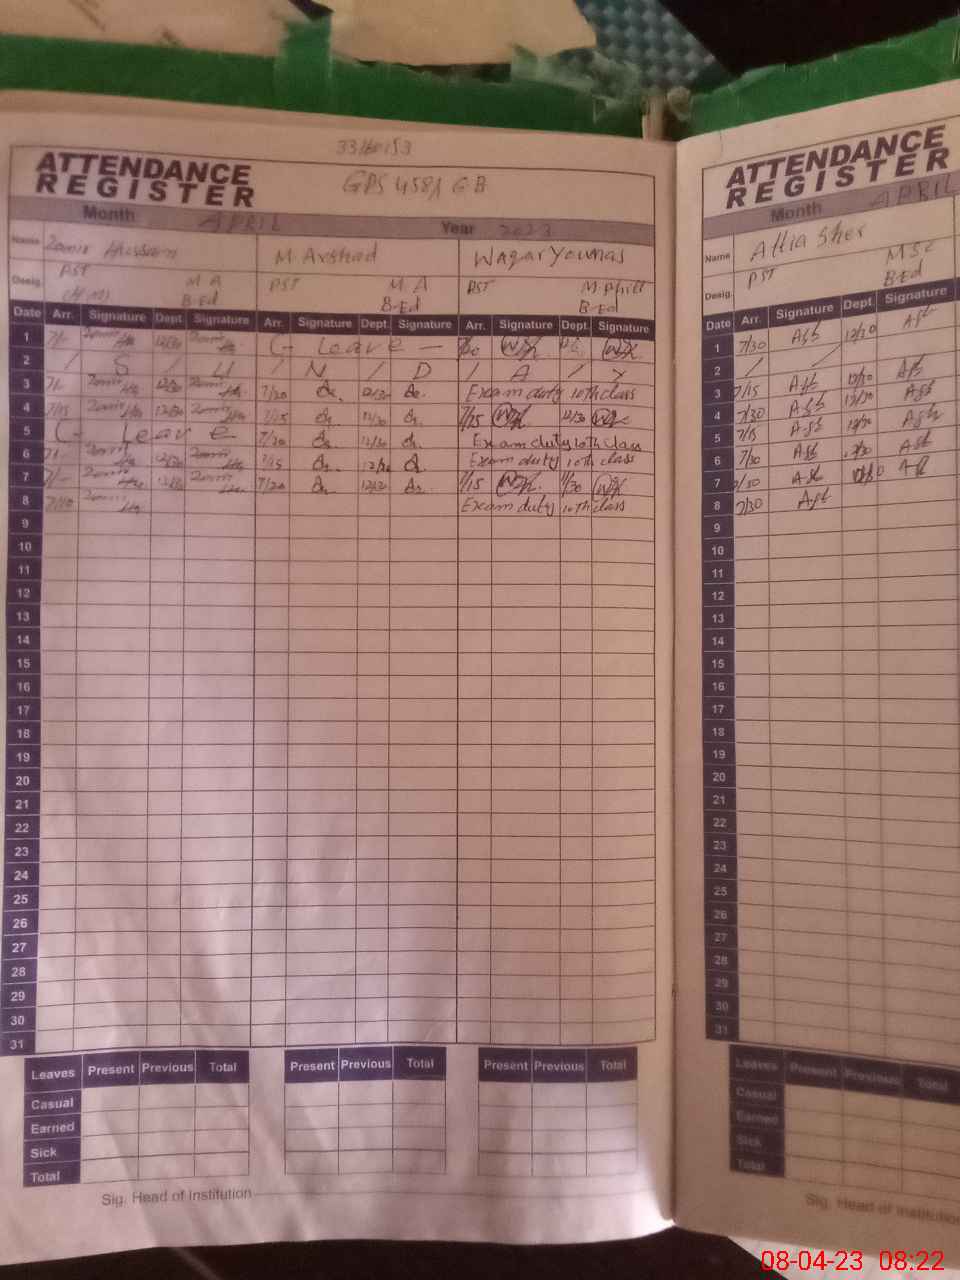 GPS 458/ GB
ATTENDANCE
REGISTER
Month APRIL Year 2023
Name Zamir Hussain M. Arshad Waqar Younas
Desig. PST M.A B.Ed PST M.A B-Ed PST M.Phill B-Ed
Date Arr. Signature Dept. Signature Arr. Signature Dept. Signature Arr. Signature Dept. Signature
1 C- Leave -
2 / S / U / N / D / A / Y
3 7/20 12/30 Exam duty 10th class
4 7/15 7/15 12/30 7/15 12/30
5 C- Leave 7/20 12/30 Exam duty 10th class
6 7/15 12/30 Exam duty 10th class
7 7/20 12/30 7/15 11/30
8 Exam duty 10th class
9
10
11
12
13
14
15
16
17
18
19
20
21
22
23
24
25
26
27
28
29
30
31
Leaves Present Previous Total Present Previous Total Present Previous Total
Casual
Earned
Sick
Total
Sig. Head of Institution
ATTENDANCE
REGISTER
Month APRIL
Name Attia Sher
Desig. PST MSC B-Ed
Date Arr. Signature Dept. Signature
1 7/30 12/30
2 / /
3 7/15 12/30
4 7/30 12/30
5 7/15 12/30
6 7/30 12/30
7 7/30
8 7/30
9
10
11
12
13
14
15
16
17
18
19
20
21
22
23
24
25
26
27
28
29
30
31
Leaves Present Previous Total
Casual
Earned
Sick
Total
Sig. Head of Institution
08-04-23 08:22